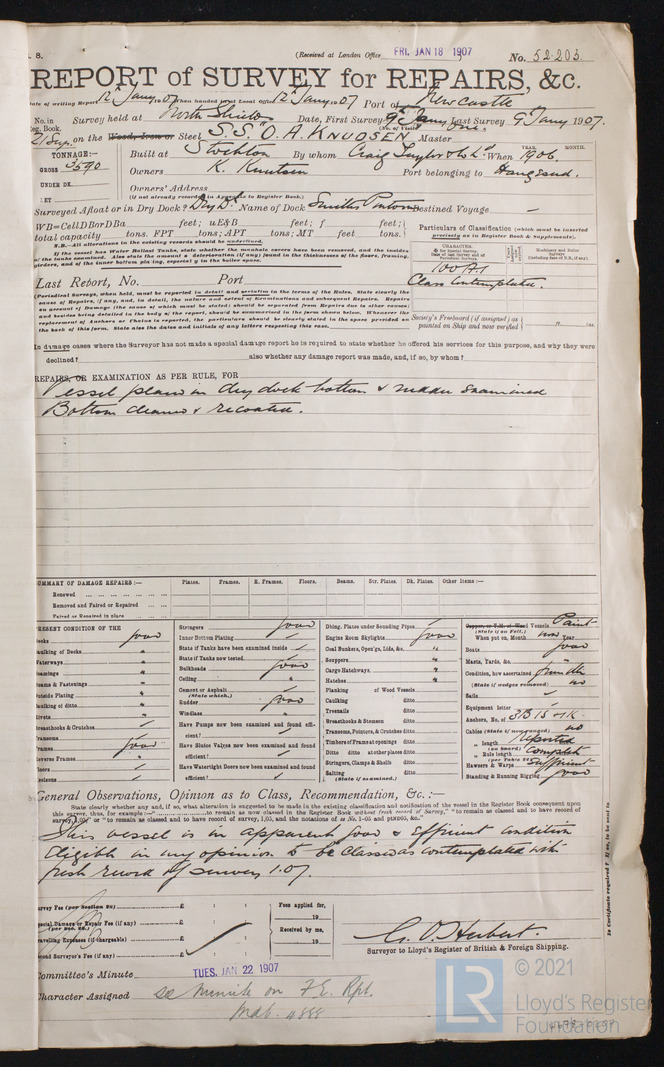 . 8.
(Received at London Office FRI. JAN 18 1907
No. 52205
REPORT of SURVEY for REPAIRS, &c.
Date of writing Report 12th Jany 1907 When handed in at Local Office 12th Jany 1907 Port of Newcastle
No. in Reg. Book. Survey held at North Shields Date, First Survey 9th Jany Last Survey 9th Jany 1907.
(No. of Visits one.)
21 Sup. on the Wood, Iron or Steel S.S. "O. A. KNUDSEN" Master
TONNAGE:— Built at Stockton By whom Craig Taylor & Co Ld. When 1906. YEAR. MONTH.
GROSS 3590 Owners K. Knutsen Port belonging to Haugesund.
UNDER DK.
NET
Owners' Address
(If not already recorded in Appendix to Register Book.)
Surveyed Afloat or in Dry Dock? Dry Dk Name of Dock Smiths Pontoon Destined Voyage —
WB=CellDBorDBa feet; uE&B feet; f feet;
total capacity tons. FPT tons; APT tons; MT feet tons.
N.B.—All alterations in the existing records should be underlined.
If the vessel has Water Ballast Tanks, state whether the manhole covers have been removed, and the insides
of the tanks examined. Also state the amount of deterioration (if any) found in the thicknesses of the floors, framing,
girders, and of the inner bottom plating, especially in the boiler space.
Particulars of Classification (which must be inserted
precisely as in Register Book & Supplements).
CHARACTER.
100A1
Class Contemplated.
Machinery and Boiler Surveys
(including date of N.B., if any).
Last Report, No. Port
(Periodical Surveys, when held, must be reported in detail and seriatim in the terms of the Rules. State clearly the
cause of Repairs, if any, and, in detail, the nature and extent of Examinations and subsequent Repairs. Repairs
on account of Damage (the cause of which must be stated) should be separated from Repairs due to other causes;
and besides being detailed in the body of the report, should be summarized in the form shown below. Whenever the
replacement of Anchors or Chains is reported, the particulars should be clearly stated in the space provided on
the back of this form. State also the dates and initials of any letters respecting this case.
Society's Freeboard (if assigned) as
painted on Ship and now verified
In damage cases where the Surveyor has not made a special damage report he is required to state whether he offered his services for this purpose, and why they were
declined? also whether any damage report was made, and, if so, by whom?
REPAIRS, OR EXAMINATION AS PER RULE, FOR
Vessel placed in dry dock bottom & rudder examined
Bottom cleaned & recoated.
SUMMARY OF DAMAGE REPAIRS:— Plates. Frames. R. Frames. Floors. Beams. Str. Plates. Dk. Plates. Other Items:—
Renewed
Removed and Faired or Repaired
Faired or Repaired in place
PRESENT CONDITION OF THE
Decks good
Caulking of Decks "
Waterways "
Coamings "
Beams & Fastenings "
Outside Plating "
Caulking of ditto "
Rivets "
Breasthooks & Crutches
Transoms
Frames good
Reverse Frames "
Floors
Keelsons
Stringers good
Inner Bottom Plating
State if Tanks have been examined inside
State if Tanks now tested
Bulkheads good
Ceiling "
Cement or Asphalt
(State which.)
Rudder good
Windlass "
Have Pumps now been examined and found efficient?
Have Sluice Valves now been examined and found efficient?
Have Watertight Doors now been examined and found efficient?
Dblng. Plates under Sounding Pipes
Engine Room Skylights good
Coal Bunkers, Open'gs, Lids, &c. "
Scuppers "
Cargo Hatchways "
Hatches "
Planking of Wood Vessels
Caulking ditto
Treenails ditto
Breasthooks & Stemson ditto
Transoms, Pointers, & Crutches ditto
Timbers of Frame at openings ditto
ditto ditto at other places ditto
Stringers, Clamps & Shelfs ditto
Salting ditto
(State if examined.)
Copper, or Y.M. of Wood Vessels Paint
(State if on Felt.)
When put on, Month now Year
Boats good
Masts, Yards, &c. "
Condition, how ascertained from dk
(State if wedges removed) no
Sails
Equipment letter
Anchors, No. of 3B 1S & 1K
Cables (State if now ranged) no
" length reported
(on board)
" Rule length complete
(per Table 22)
Hawsers & Warps sufficient
Standing & Running Rigging good
General Observations, Opinion as to Class, Recommendation, &c.:—
State clearly whether any, and if so, what alteration is suggested to be made in the existing classification and notification of the vessel in the Register Book consequent upon
this survey, thus, for example:—" to remain as now classed in the Register Book without fresh record of Survey," "to remain as classed and to have record of
survey, 1,05" or "to remain as classed and to have record of survey, 1,05, and the notations of
This vessel is in apparent good & efficient condition
eligible in my opinion to be classed as contemplated with
fresh record of survey 1.07.
Survey Fee (per Section 28) £
Special Damage or Repair Fee (if any) £
(per Sec. 28.)
Travelling Expenses (if chargeable) £
Second Surveyor's Fee (if any) £
Fees applied for,
19
Received by me,
19
G. O. Herbert.
Surveyor to Lloyd's Register of British & Foreign Shipping.
Committee's Minute TUES. JAN 22 1907
Character Assigned See minute on F.E. Rpt.
Mdb. 4888
© 2021
LR
Lloyd's Register
Foundation